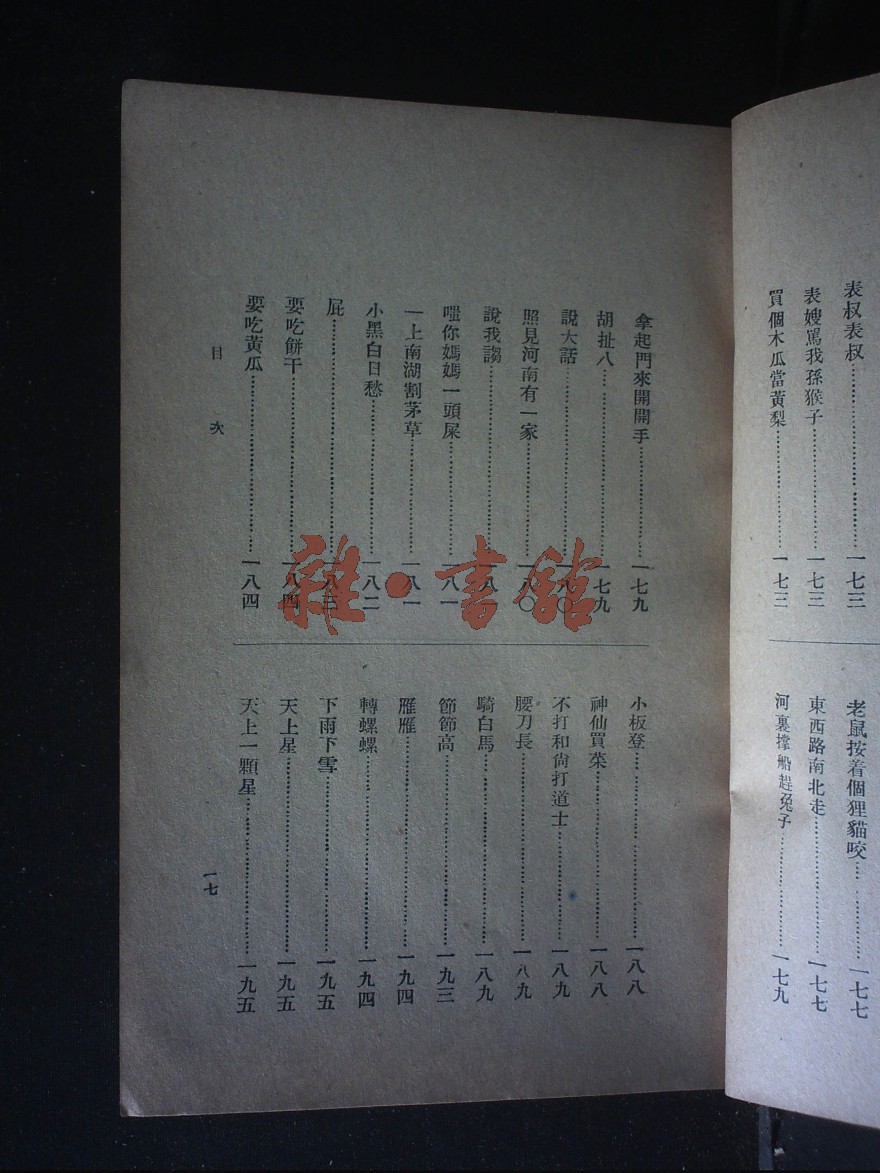 表叔表叔……一七三
表嫂罵我孫猴子……一七三
買個木瓜當黃梨……一七三
老鼠按着個狸貓咬……一七七
東西路南北走……一七七
河裏撐船趕兔子……一七九
拿起門來開開手……一七九
胡扯八……一七九
說大話……一八〇
照見河南有一家……一八〇
說我謅……一八一
嗤你媽媽一頭屎……一八一
一上南湖割茅草……一八一
小黑白日愁……一八二
屁……一八三
要吃餅干……一八四
要吃黃瓜……一八四
小板登……一八八
神仙買菜……一八八
不打和尙打道士……一八九
腰刀長……一八九
騎白馬……一八九
節節高……一九三
雁雁……一九四
轉螺螺……一九四
下雨下雪……一九五
天上星……一九五
天上一顆星……一九五
目次
一七
雜·書館